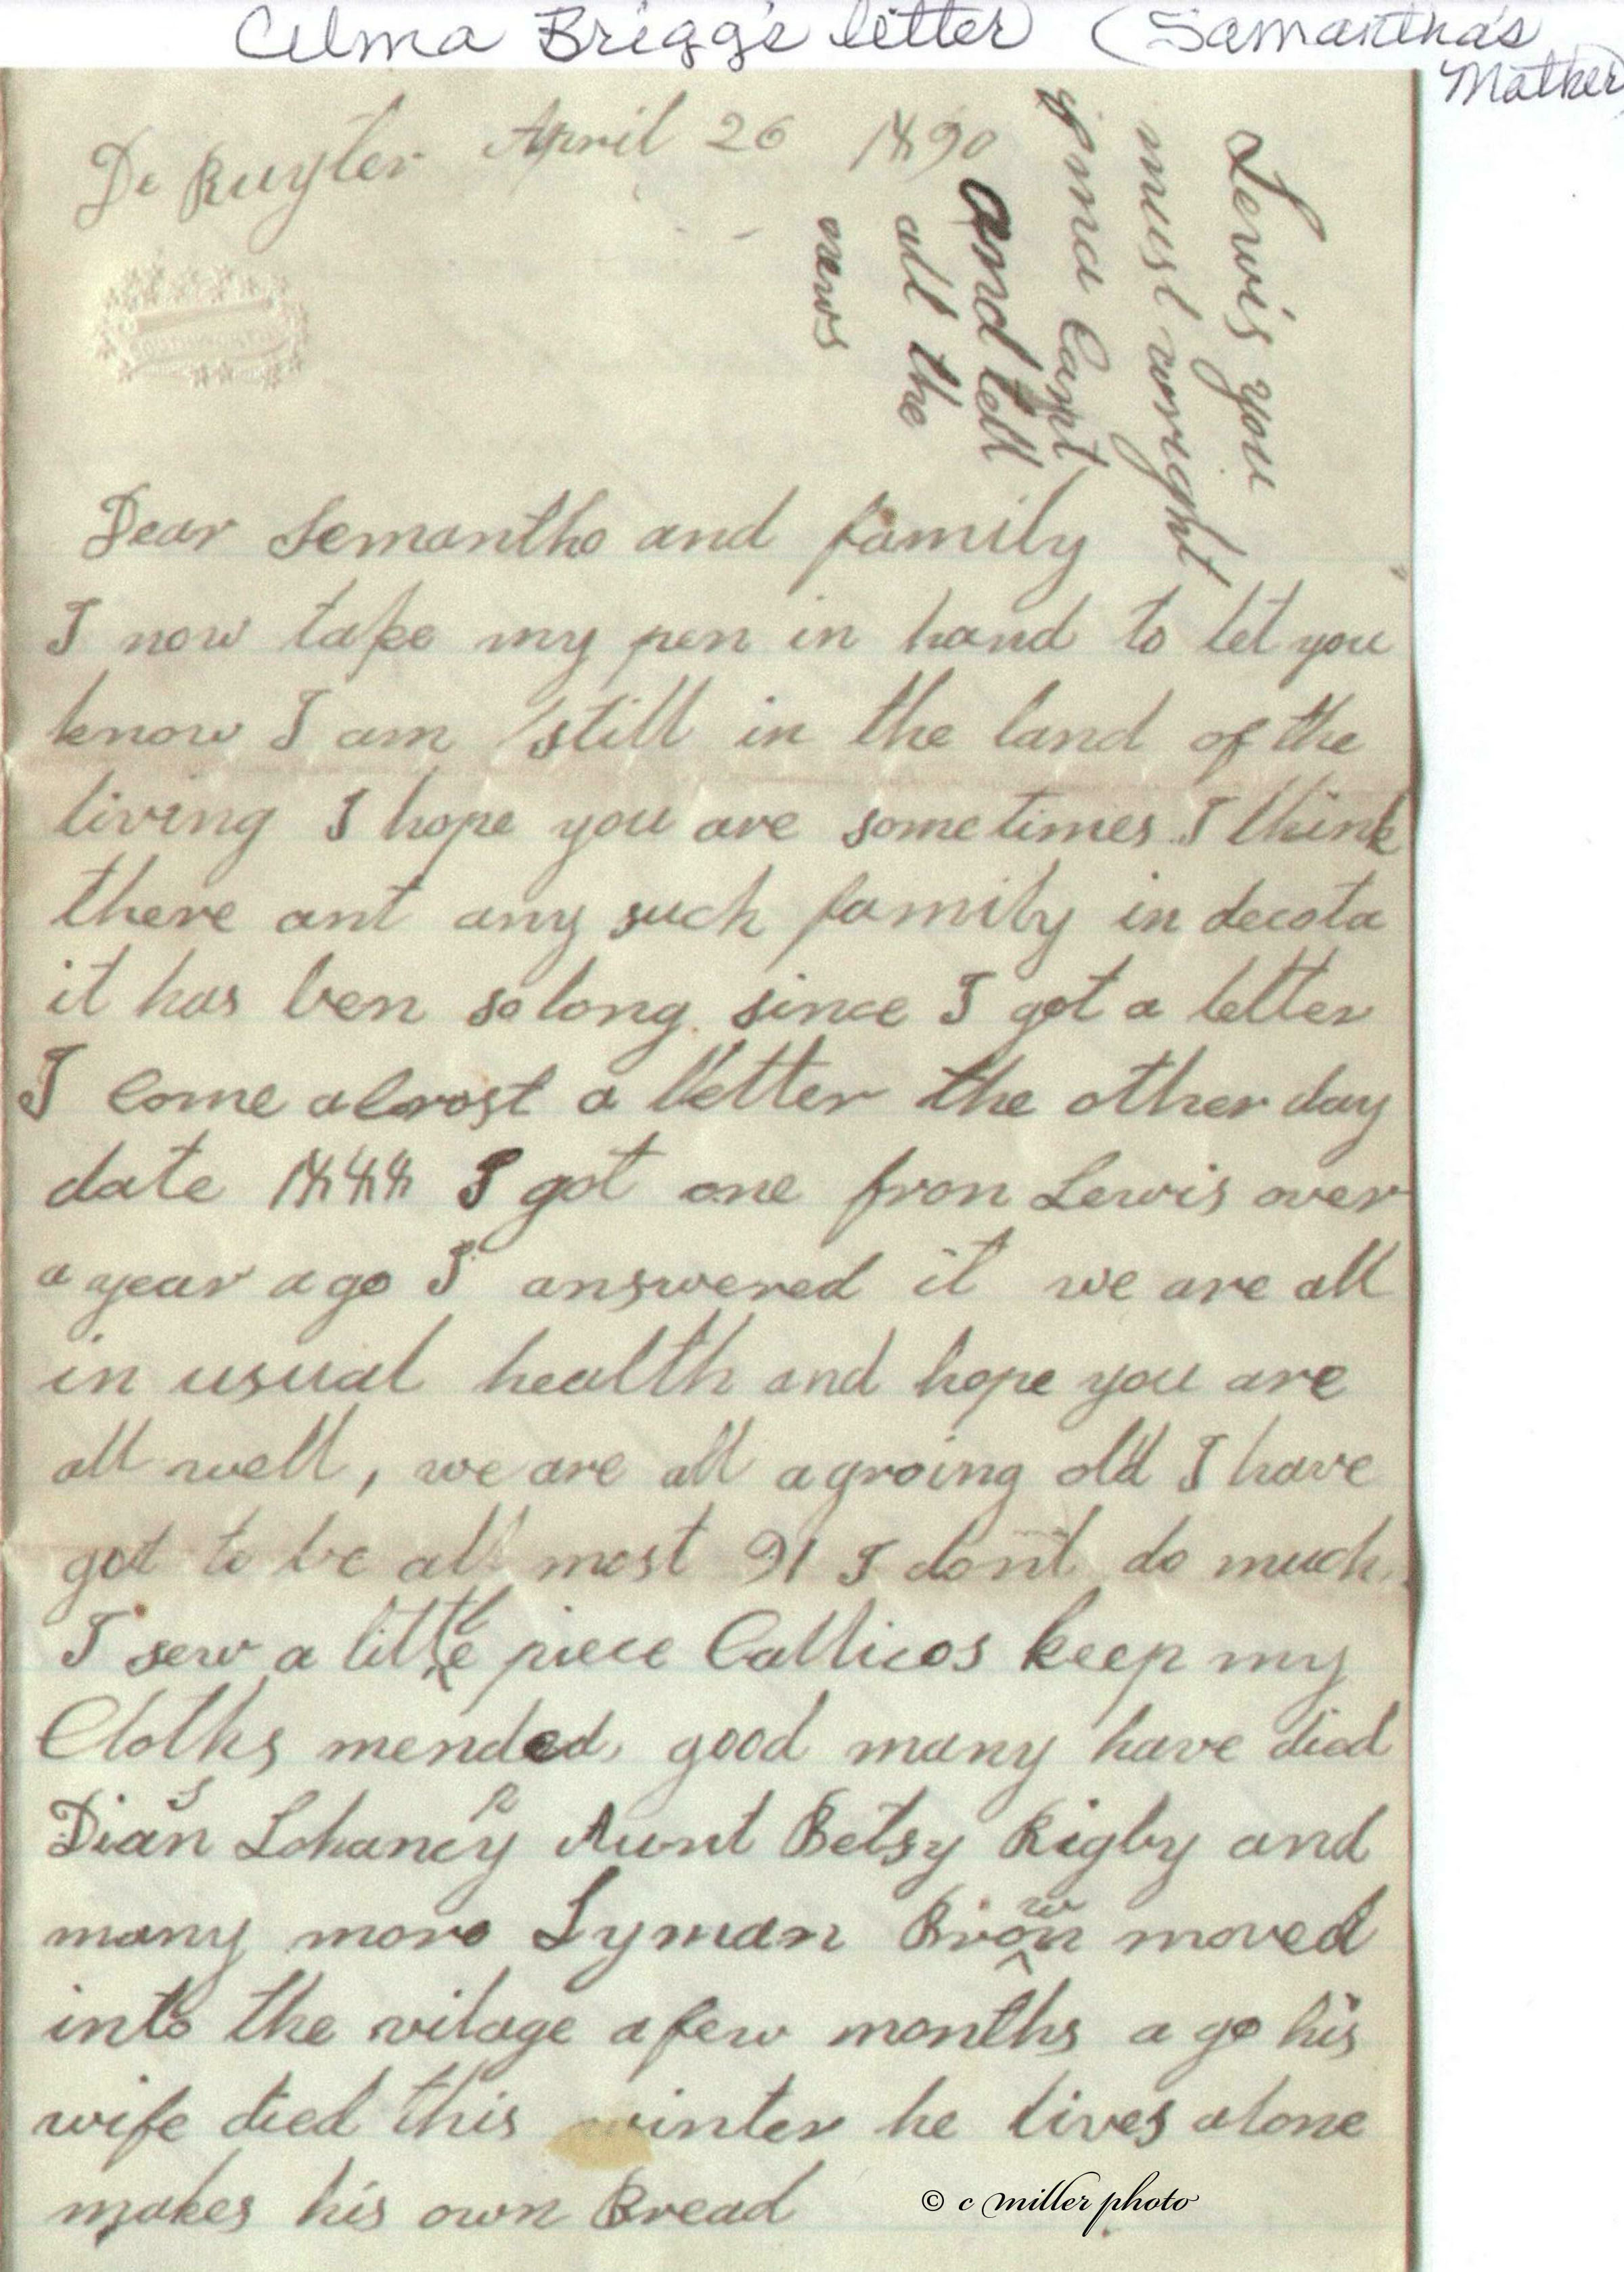 Celma Briggs letter (Samantha's
Mother)
De Ruyter April 26 1890
Lewis you
must wright
g ma Cant
and tell
all the
news
Dear Semantho and family
I now take my pen in hand to let you
know I am still in the land of the
living I hope you are some times I think
there ant any such family in decota
it has ben so long since I got a letter
I Come alrost a letter the other day
date 1888 I got one fron Lewis over
a year ago I answered it we are all
in usual health and hope you are
all well, we are all agroing old I have
got to be all most 91 I dont do much
I sew a little piece Callicos keep my
Cloths mended, good many have died
Dian Lohancy Aunt Betsy Rigby and
many more Lyman Brown moved
into the vilage a few months a go his
wife died this winter he lives alone
makes his own Bread
© c miller photo